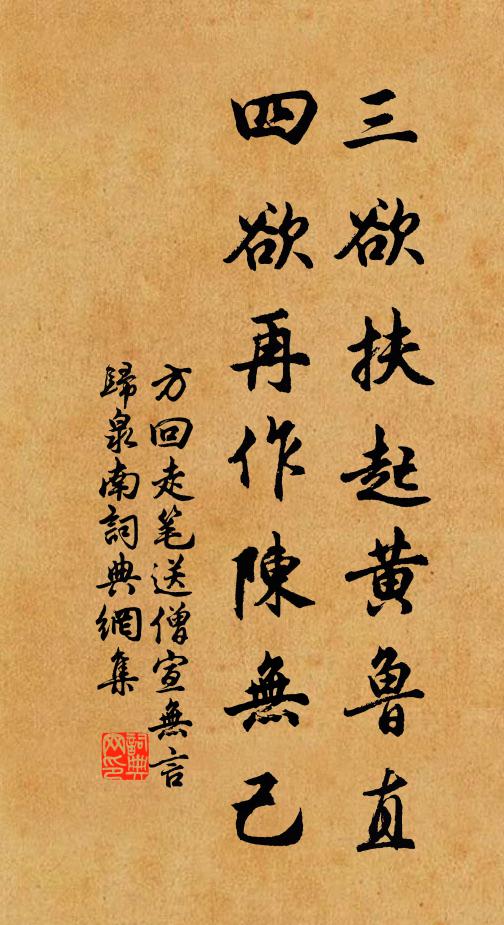 三欲扶起黄魯直
四欲再作陳無己
方回走笔送僧宣無言
歸泉南詞典網集
詞典网印